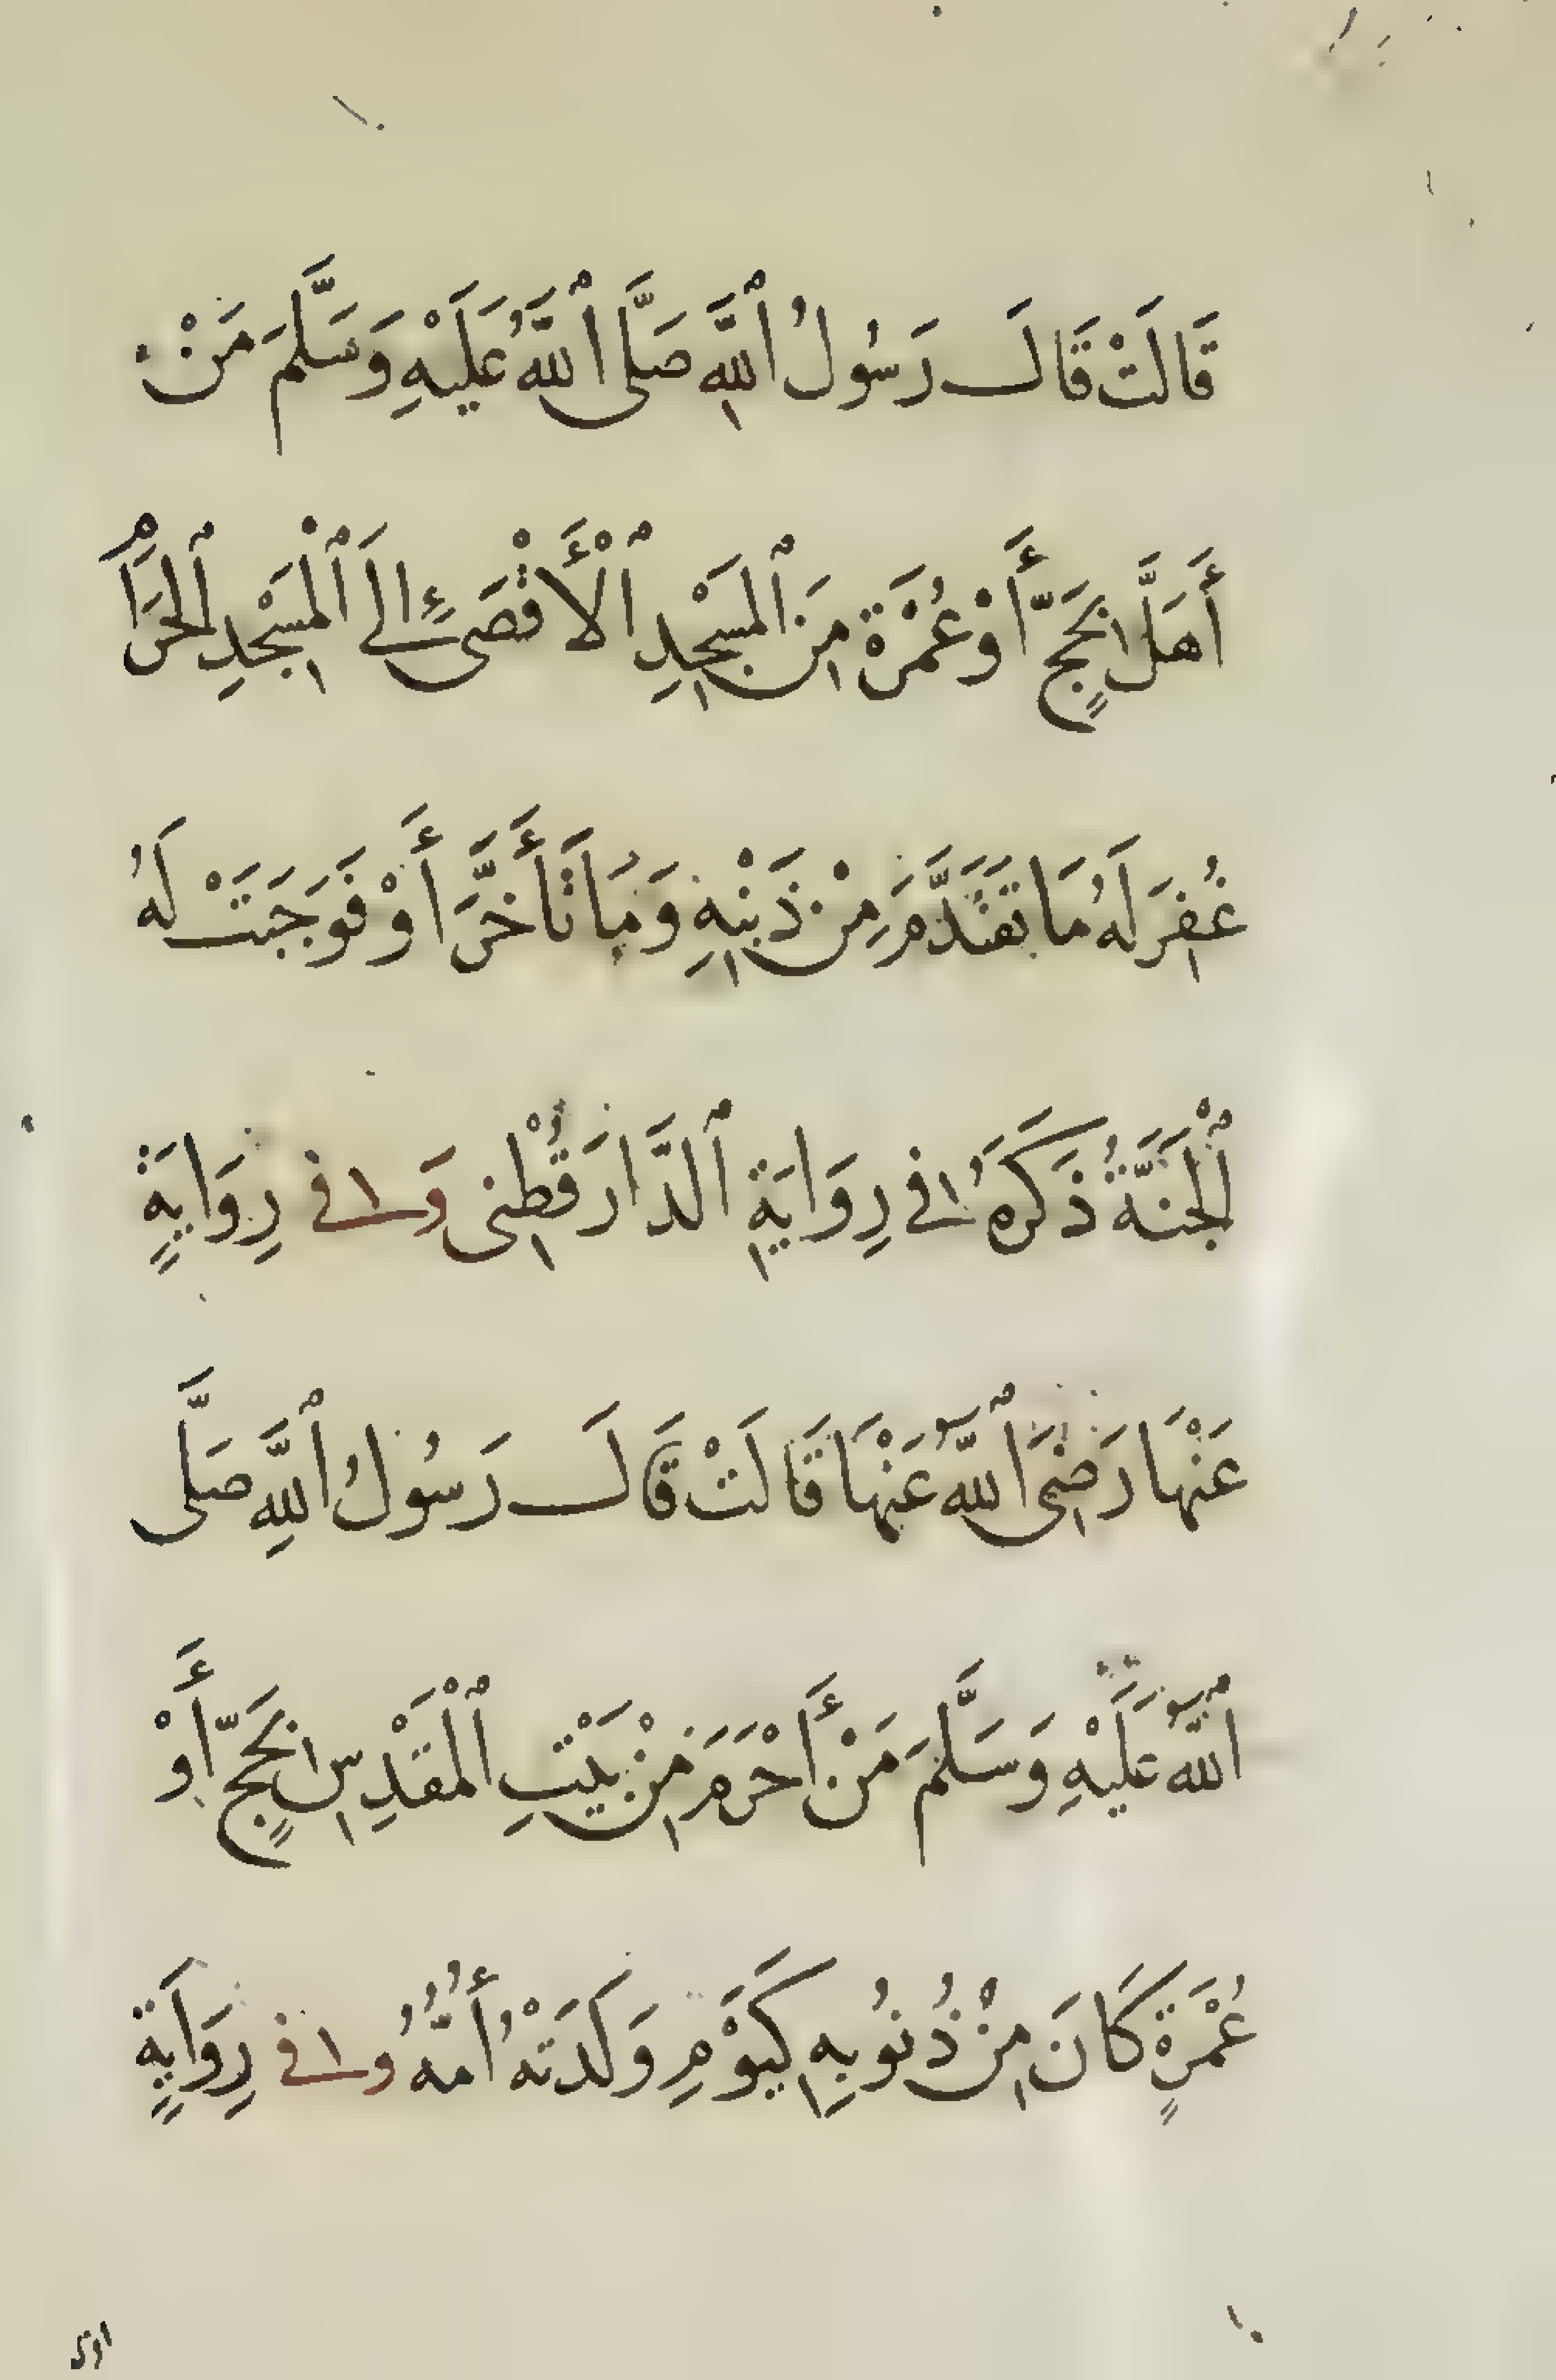 قَالَتْ قَالَ رَسُولُ ٱللَّهِ صَلَّى ٱللَّهُ عَلَيْهِ وَسَلَّمَ مَنْ
أَهَلَّ بِحَجٍّ أَوْ عُمْرَةٍ مِنَ ٱلْمَسْجِدِ ٱلْأَقْصَىٰ إِلَى ٱلْمَسْجِدِ ٱلْحَرَامِ
غُفِرَ لَهُ مَا تَقَدَّمَ مِنْ ذَنْبِهِ وَمَا تَأَخَّرَ أَوْ فَوَجَبَتْ لَهُ
ٱلْجَنَّةُ ذَكَرَهُ فِى رِوَايَةِ ٱلدَّارَقُطْنِى وَفِى رِوَايَةٍ
عَنْهَا رَضِىَ ٱللَّهُ عَنْهَا قَالَتْ قَالَ رَسُولُ ٱللَّهِ صَلَّى
ٱللَّهُ عَلَيْهِ وَسَلَّمَ مَنْ أَحْرَمَ مِنْ بَيْتِ ٱلْمَقْدِسِ بِحَجٍّ أَوْ
عُمْرَةٍ كَانَ مِنْ ذُنُوبِهِ كَيَوْمِ وَلَدَتْهُ أُمُّهُ وَفِى رِوَايَةٍ